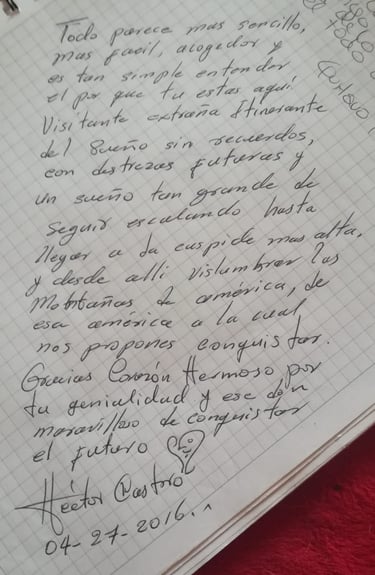 Todo parece mas sencillo,
mas facil, acogedor y
es tan simple entender
el por que tu estas aquí
Visitante extraña Itinerante
del Sueño sin recuerdos,
con destrezas futuras y
un sueño tan grande de
seguir escalando hasta
llegar a la cuspide mas alta,
y desde alli vislumbrar las
Montañas de américa, de
esa américa a la cual
nos propones conquistar.
Gracias Corazón Hermoso por
tu genialidad y ese don
maravilloso de conquistar
el futuro
Héctor Castro
04-27-2016
todo